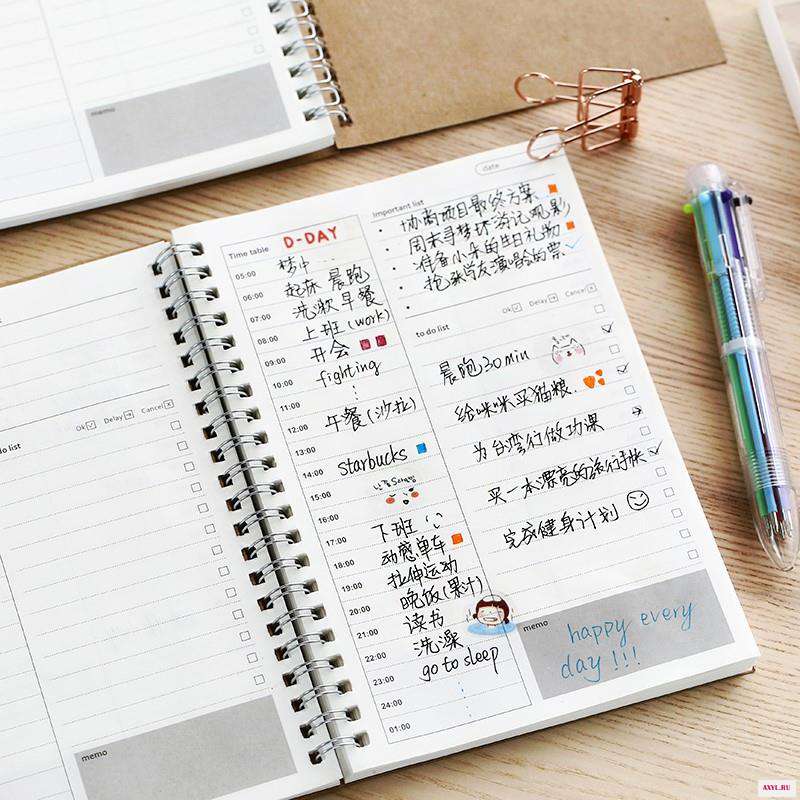 memo
do list
Ok
Delay
Cancel
memo
date
Time table
D-DAY
05:00
梦中
06:00
起床 晨跑
07:00
洗漱 早餐
08:00
上班 (work)
09:00
开会
10:00
fighting
11:00
12:00
午餐 (沙拉)
13:00
14:00
starbucks
15:00
16:00
17:00
下班
18:00
动感单车
19:00
拉伸运动
20:00
晚饭 (果汁)
21:00
读书
22:00
洗澡
23:00
go to sleep
24:00
01:00
Important list
协商项目最终方案
周末寻梦环游记观影
准备小朵的生日礼物
抢张学友演唱会的票
Ok
Delay
Cancel
to do list
晨跑30min
给咪咪买猫粮.
为台湾行做功课
买一本漂亮的旅行手账
完成健身计划
memo
happy every
day !!!
AXYL.RU